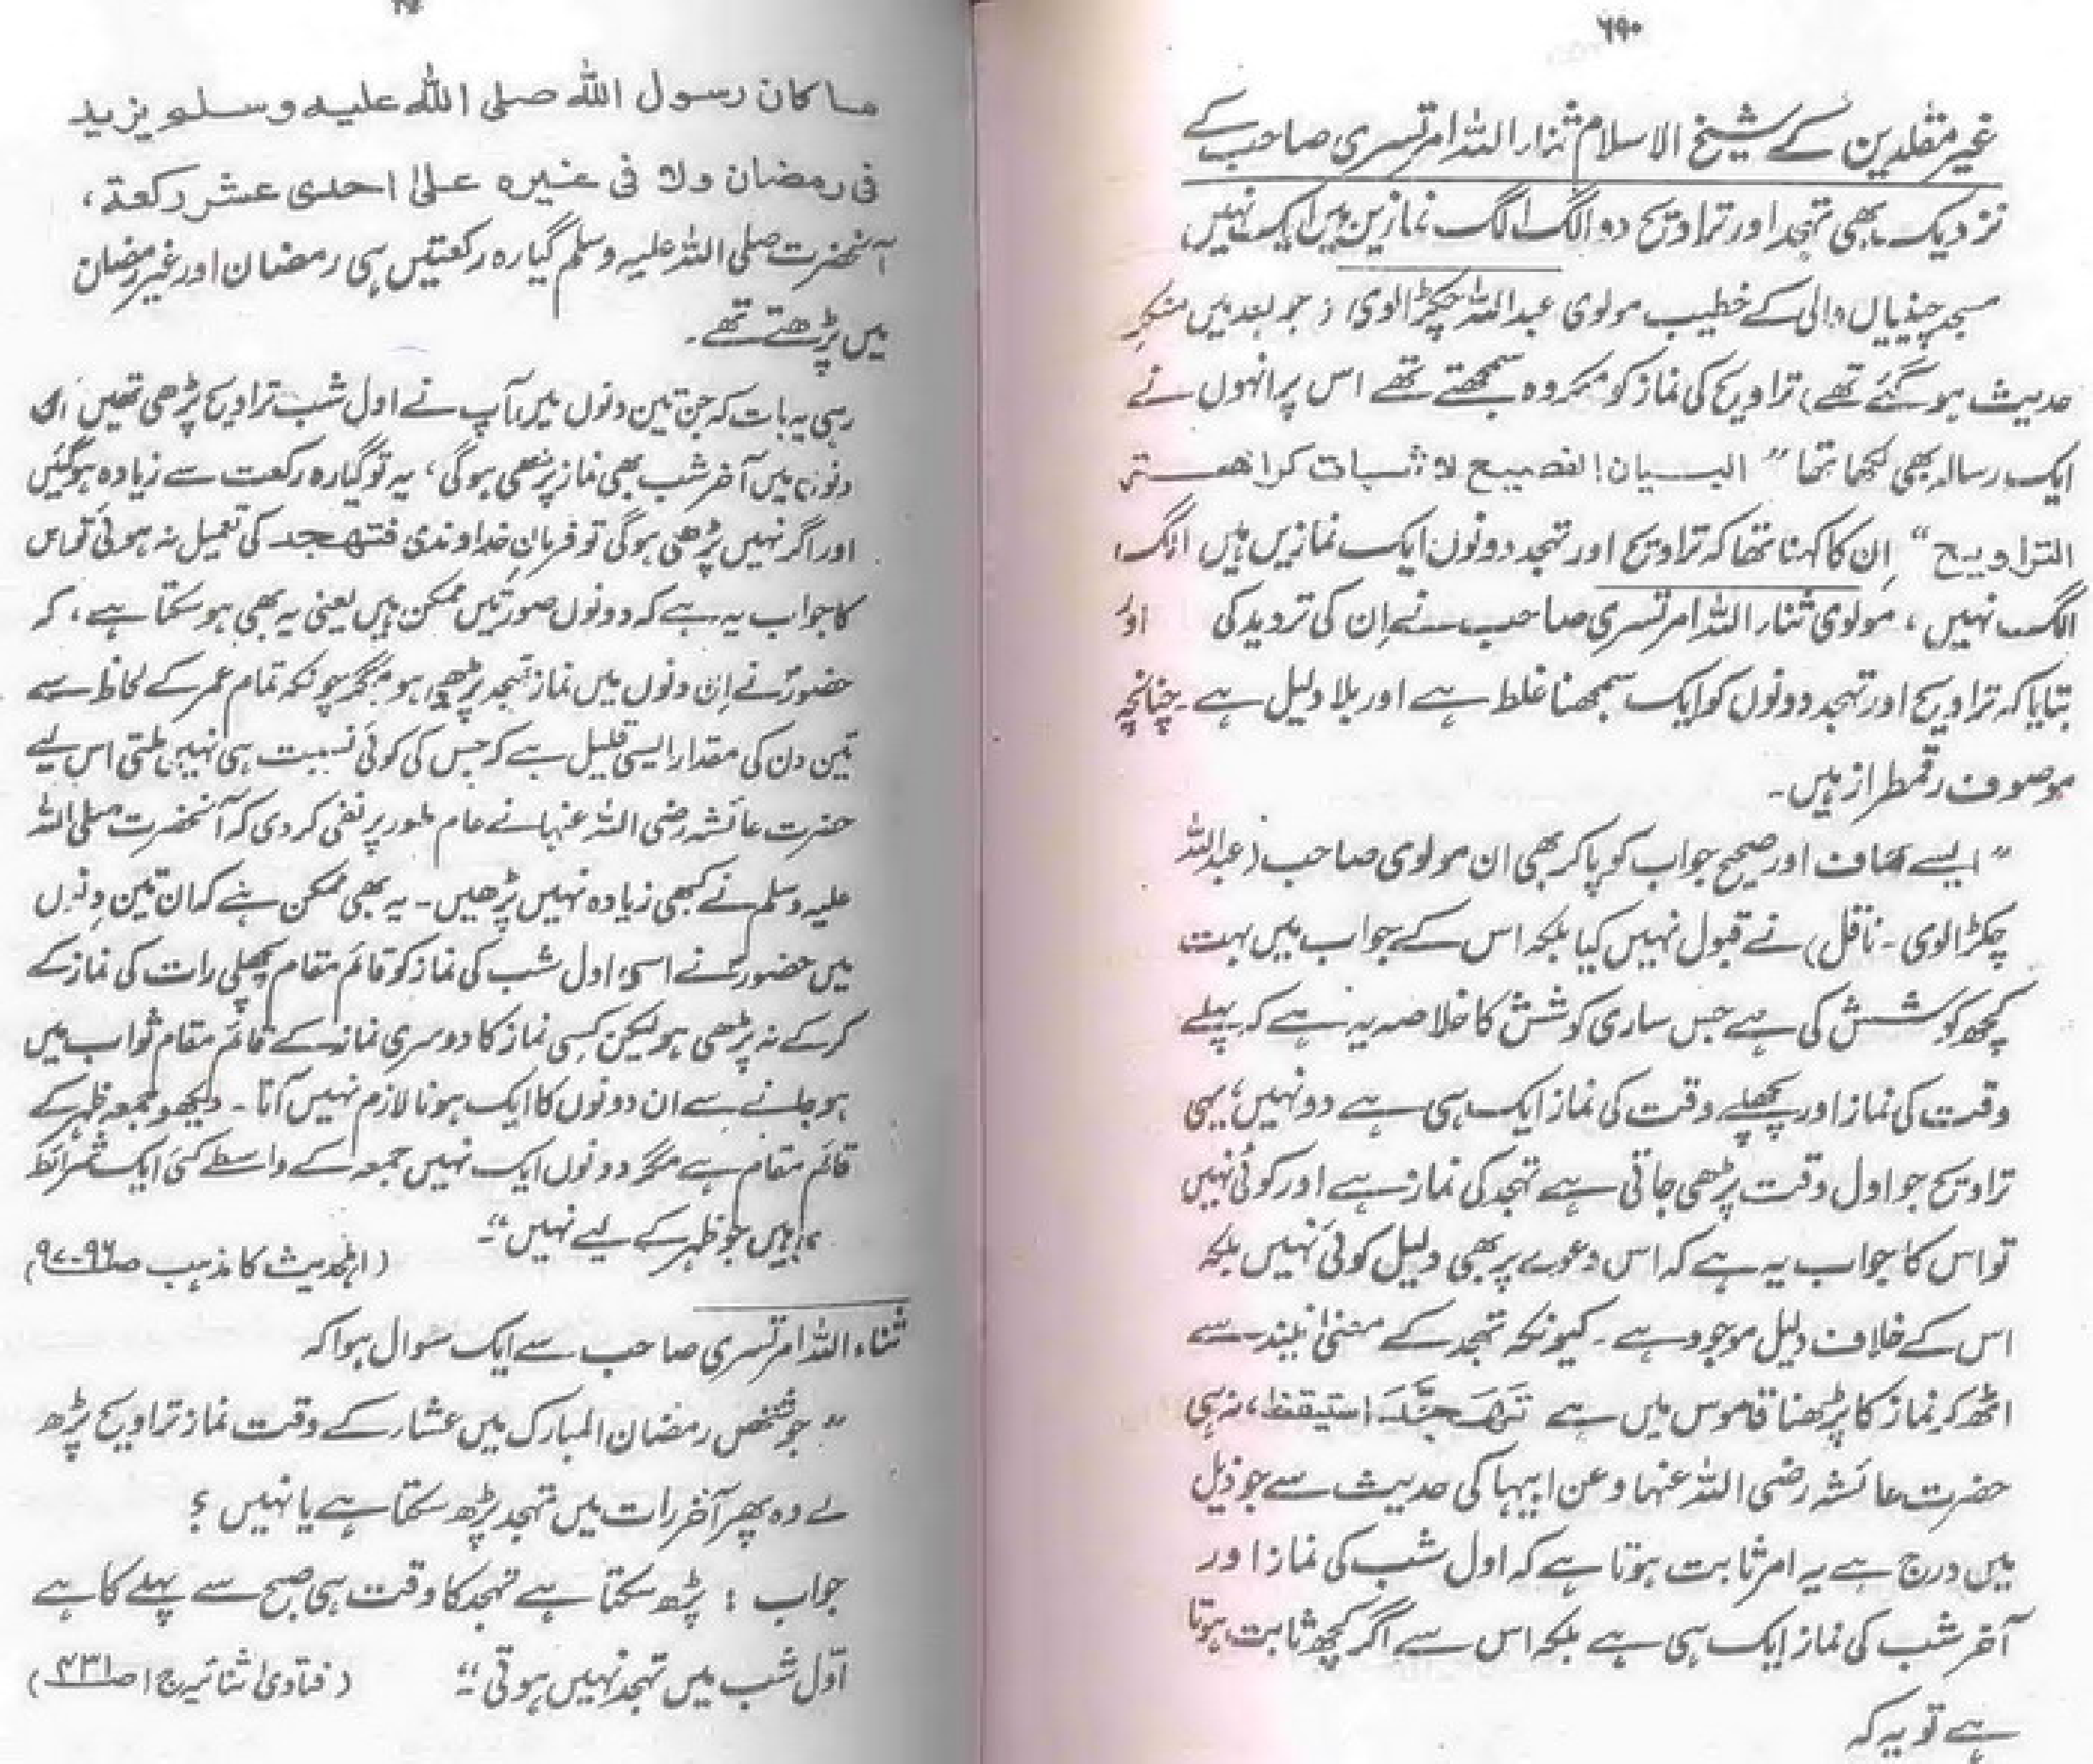 ۶۹۰
غیر مقلدین کے شیخ الاسلام ثناء اللہ امرتسری صاحب کے
نزدیک بھی تہجد اور تراویح دو الگ الگ نمازیں ہیں ایک نہیں
مسجد چینیاں والی کے خطیب مولوی عبداللہ چکڑالوی (جو بعد میں منکرِ
حدیث ہو گئے تھے) تراویح کی نماز کو مکروہ سمجھتے تھے اس پر انہوں نے
ایک رسالہ بھی لکھا تھا ” البیان الفصیح لاثبات کراھتہ
التراویح “ اِن کا کہنا تھا کہ تراویح اور تہجد دونوں ایک نمازیں ہیں الگ
الگ نہیں ، مولوی ثناء اللہ امرتسری صاحب نے اِن کی تردید کی اور
بتایا کہ تراویح اور تہجد دونوں کو ایک سمجھنا غلط ہے اور بلا دلیل ہے ۔ چنانچہ
موصوف رقمطراز ہیں۔
” ایسے صاف اور صحیح جواب کو پا کر بھی ان مولوی صاحب (عبداللہ
چکڑالوی ۔ ناقل) نے قبول نہیں کیا بلکہ اس کے جواب میں بہت
کچھ کوشش کی ہے جس ساری کوشش کا خلاصہ یہ ہے کہ پہلے
وقت کی نماز اور پچھلے وقت کی نماز ایک ہی ہے دو نہیں، یہی
تراویح جو اول وقت پڑھی جاتی ہے تہجد کی نماز ہے اور کوئی نہیں
تو اس کا جواب یہ ہے کہ اس دعوے پر بھی دلیل کوئی نہیں بلکہ
اس کے خلاف دلیل موجود ہے ۔ کیونکہ تہجد کے معنیٰ نیند سے
اٹھ کر نماز کا پڑھنا قاموس میں ہے تَھَجَّدَ استیقظ، نہ ہی
حضرت عائشہ رضی اللہ عنہا و عن ابیہا کی حدیث سے جو ذیل
میں درج ہے یہ امر ثابت ہوتا ہے کہ اول شب کی نماز اور
آخر شب کی نماز ایک ہی ہے بلکہ اس سے اگر کچھ ثابت ہوتا
ہے تو یہ کہ
ما کان رسول اللہ صلی اللہ علیہ وسلم یزید
فی رمضان ولا فی غیرہ علیٰ احدی عشر رکعۃ،
آنحضرت صلی اللہ علیہ وسلم گیارہ رکعتیں ہی رمضان اور غیر رمضان
میں پڑھتے تھے۔
رہی یہ بات کہ جن تین دنوں میں آپ نے اول شب تراویح پڑھی تھیں ان
دنوں میں آخر شب بھی نماز پڑھی ہوگی، یہ تو گیارہ رکعت سے زیادہ ہو گئیں
اور اگر نہیں پڑھی ہوگی تو فرمانِ خداوندی فتھجد کی تعمیل نہ ہوئی تو اس
کا جواب یہ ہے کہ دونوں صورتیں ممکن ہیں یعنی یہ بھی ہو سکتا ہے، کہ
حضورؐ نے اِن دنوں میں نماز تہجد پڑھی ہو مگر چونکہ تمام عمر کے لحاظ سے
تین دن کی مقدار ایسی قلیل ہے کہ جس کی کوئی نسبت ہی نہیں ملتی اس لیے
حضرت عائشہ رضی اللہ عنہا نے عام طور پر نفی کر دی کہ آنحضرت صلی اللہ
علیہ وسلم نے کبھی زیادہ نہیں پڑھیں ۔ یہ بھی ممکن ہے کہ ان تین دنوں
میں حضورؐ نے اسی اول شب کی نماز کو قائم مقام پچھلی رات کی نماز کے
کر کے نہ پڑھی ہو لیکن کسی نماز کا دوسری نماز کے قائم مقام ثواب میں
ہو جانے سے ان دونوں کا ایک ہونا لازم نہیں آتا ۔ دیکھو جمعہ ظہر کے
قائم مقام ہے مگر دونوں ایک نہیں جمعہ کے واسطے کئی ایک شرائط
ہیں جو ظہر کے لیے نہیں“۔
(اہلحدیث کا مذہب صـ۹۶-۹۷)
ثناء اللہ امرتسری صاحب سے ایک سوال ہوا کہ
” جو شخص رمضان المبارک میں عشاء کے وقت نماز تراویح پڑھ
لے وہ پھر آخر رات میں تہجد پڑھ سکتا ہے یا نہیں ؟
جواب : پڑھ سکتا ہے تہجد کا وقت ہی صبح سے پہلے کا ہے
اوّل شب میں تہجد نہیں ہوتی “ (فتاویٰ ثنائیہ ج۱ صـ۴۳۱)